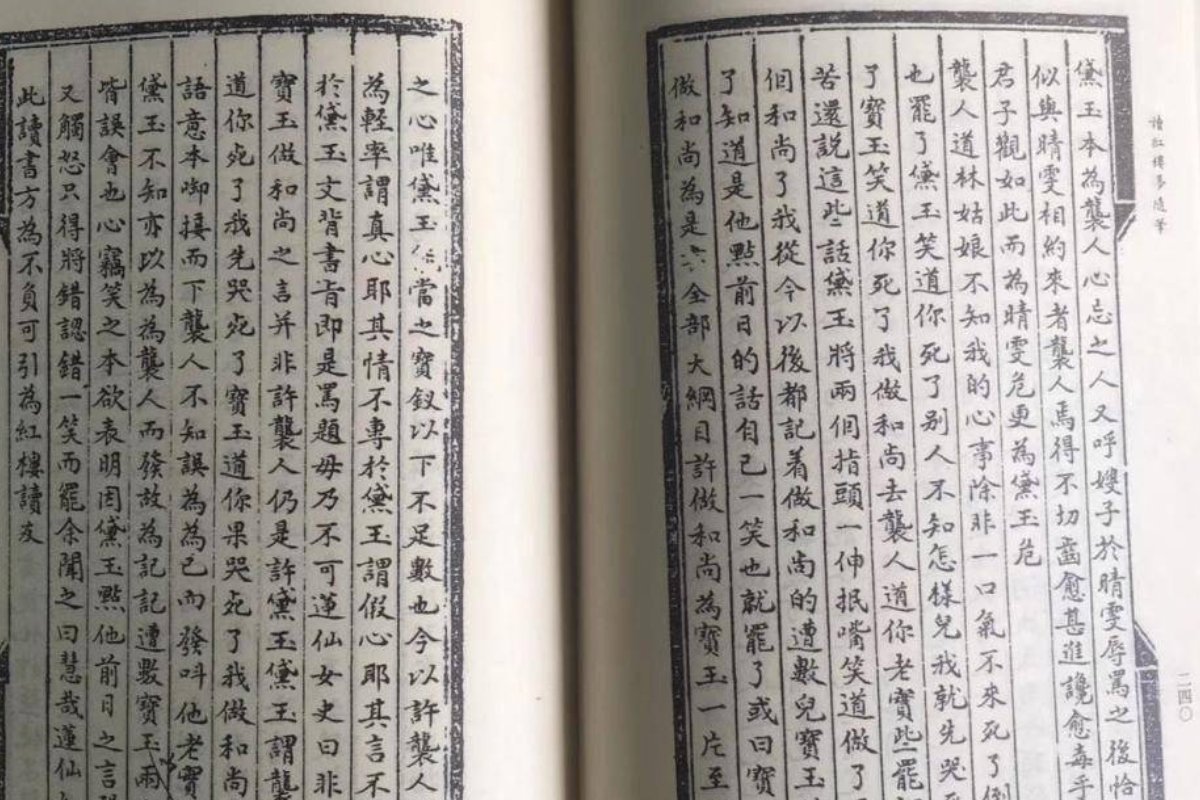 讀紅樓夢隨筆
二四〇
黛玉本為襲人心忌之人又呼嫂子於晴雯辱罵之後恰
似與晴雯相約來者襲人焉得不切齒愈甚進讒愈毒乎
君子觀如此而為晴雯危更為黛玉危
襲人道林姑娘不知我的心事除非一口氣不來死了倒
也罷了黛玉笑道你死了別人不知怎樣兒我就先哭死
了寶玉笑道你死了我做和尚去襲人道你老寶些罷
苦還說這些話黛玉將兩個指頭一伸抿嘴笑道做了
個和尚了我從今以後都記着做和尚的遭數兒寶玉
了知道是他點前日的話自己一笑也就罷了或曰寶
做和尚為是全部大綱目許做和尚為寶玉一片至
之心唯黛玉當之寶釵以下不足數也今以許襲人
為輕率謂真心耶其情不專於黛玉謂假心耶其言不
於黛玉文背書旨即是罵題毋乃不可蓮仙女史曰非
寶玉做和尚之言并非許襲人仍是許黛玉黛玉謂襲
道你死了我先哭死了寶玉道你果哭死了我做和尚
語意本啣接而下襲人不知誤為為己而發叫他老實
黛玉不知亦以為為襲人而發故為記記遭數寶玉兩
皆誤會也心竊笑之本欲表明因黛玉點他前日之言
又觸怒只得將錯認錯一笑而罷余聞之曰慧哉蓮仙
此讀書方為不負可引為紅樓讀友